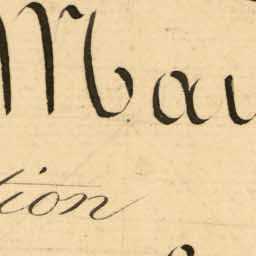 Mau
tion